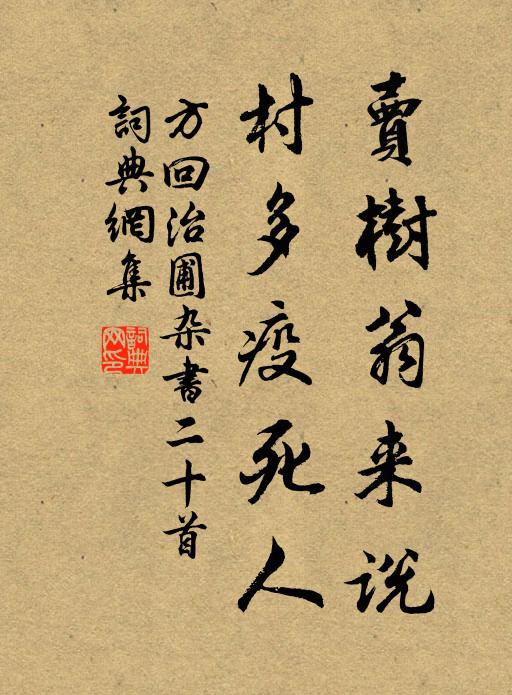 賣樹翁来説
村多疫死人
方回治圃杂書二十首
詞典網集
詞典网印